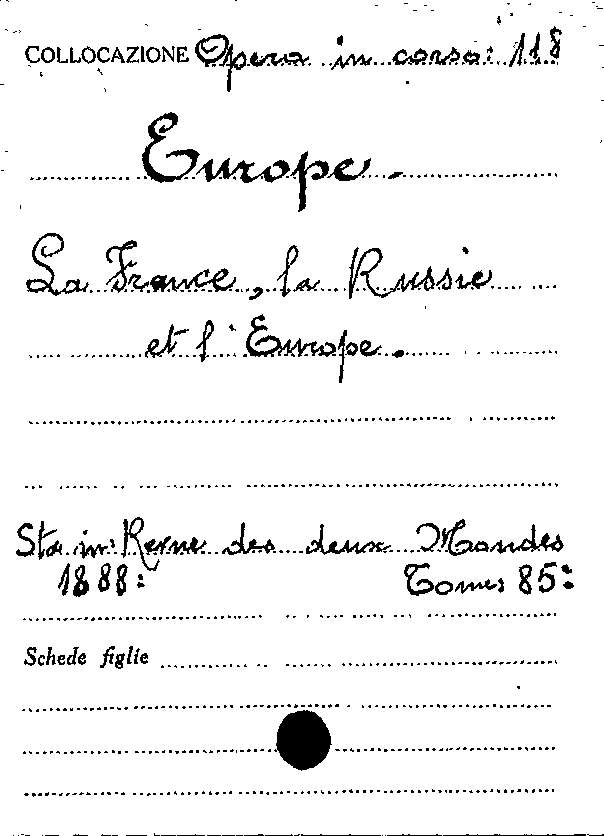 COLLOCAZIONE Opera in corso: 118
Europe.
La France, la Russie
et l'Europe.
Sta in: Revue des deux Mondes
1888: Tome: 85:
Schede figlie